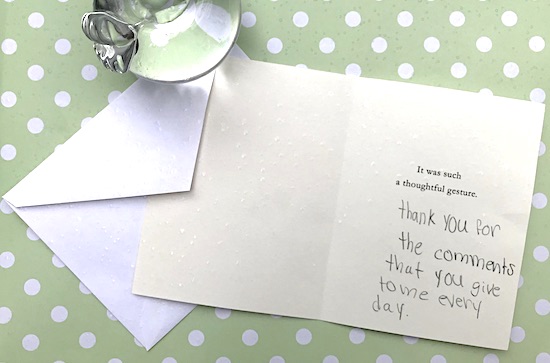 It was such
a thoughtful gesture.
thank you for
the comments
that you give
to me every
day.